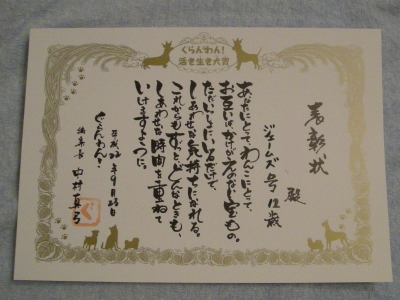 くらんわん！
活き生き大賞
表彰状
ジェームズ号 12歳
殿
あなたにとって、わんこにとって、
お互いが、かけがえのない宝もの。
ただいっしょにいるだけで、
しあわせな気持ちになれる。
これからもずっと、どんなときも、
しあわせな時間を重ねて
いけますように。
平成22年9月25日
ぐらんわん！
編集長 中村真弓
ぐ